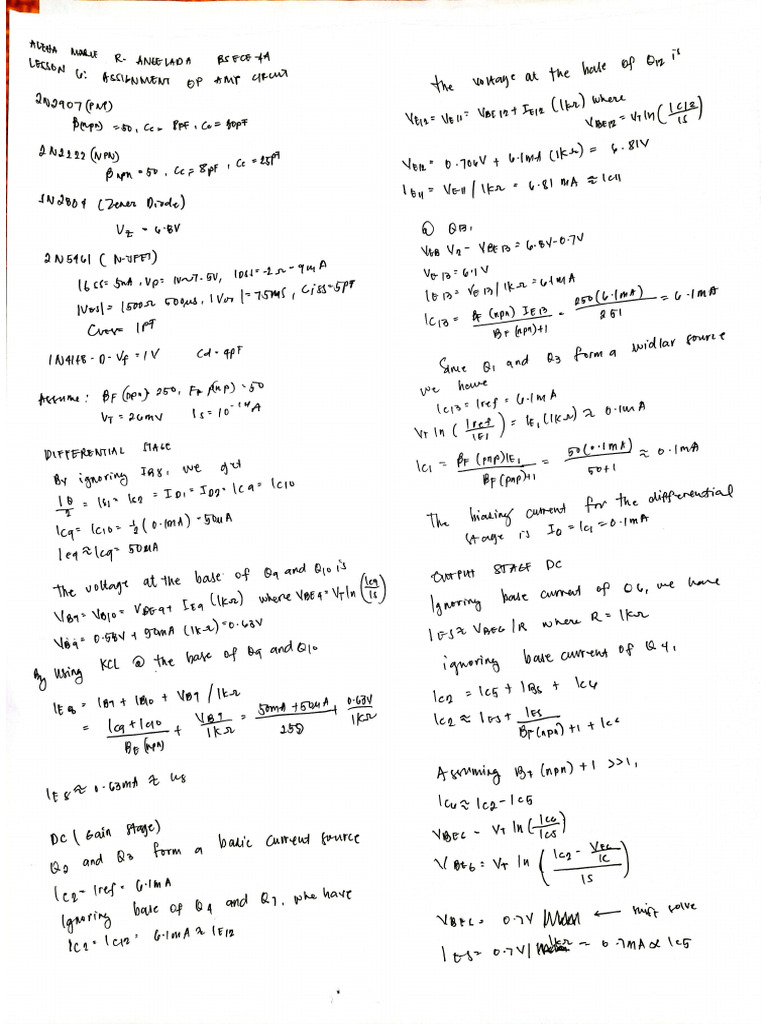 ALEHA MARIE R. ANGELADA BSECE-4A
LESSON 6: ASSIGNMENT OP AMP CIRCUIT
2N2907 (PNP)
β(npn) = 50, Cc = 8PF, Co = 30pF
2N2222 (NPN)
βnpn = 50, Cc = 8pF, Cc = 25pF
1N2804 (Zener Diode)
Vz = 6.8V
2N5461 (N-JFET)
IGSS = 5nA, Vp = 1V~7.5V, IDSS = -2 ~ -9mA
|Vos| = 1500Ω 500μs, |Yos| = 75ms, Ciss = 5PF
Crss = 1PF
1N4148 - D - Vf = 1V Cd = 4pF
Assume: BF(npn) 250, FF(pnp) = 50
VT = 26mV Is = 10^-14 A
DIFFERENTIAL STAGE
By ignoring IB8, we get
IB/2 = IS1 = IS2 = ID1 = ID2 = IC9 = IC10
IC9 = IC10 = 1/2 (0.1mA) = 50μA
IE9 ≈ IC9 = 50μA
The voltage at the base of Q9 and Q10 is
VB9 = VB10 = VBE9 + IE9 (1kΩ) where VBE9 = VT ln (IC9/IS)
VB9 = 0.58V + 50mA (1kΩ) = 0.63V
By using KCL @ the base of Q9 and Q10
IE8 = IB9 + IB10 + VB9 / 1kΩ
= (IC9 + IC10)/BF(npn) + VB9/1kΩ = (50mA + 50μA)/250 + 0.63V/1kΩ
IE8 ≈ 0.63mA ≈ IC8
DC (Gain Stage)
Q2 and Q3 form a basic current source
IC2 - Iref = 6.1mA
Ignoring base of Q4 and Q7, whe have
IC2 = IC12 = 6.1mA ≈ IE12
the voltage at the base of Q12 is
VE12 = VE11 = VBE12 + IE12 (1kΩ) where
VBE12 = VT ln (IC12/IS)
VE12 = 0.706V + 6.1mA (1kΩ) = 6.81V
IE11 = VE11 / 1kΩ = 6.81 mA ≈ IC11
@ Q13,
VEB VZ - VBE13 = 6.8V - 0.7V
VE13 = 6.1V
IE13 = VE13 / 1kΩ = 6.1mA
IC13 = BF(npn) IE13 / BF(npn)+1 = 250(6.1mA)/251 = 6.1mA
Since Q1 and Q3 form a widlar source
we have
IC13 = Iref = 6.1mA
VT ln (Iref/IE1) = IE1 (1kΩ) ≈ 0.1mA
IC1 = BF(pnp)IE1 / BF(pnp)+1 = 50(0.1mA)/50+1 ≈ 0.1mA
The biasing current for the differential
stage is IO = IC1 = 0.1mA
OUTPUT STAGE DC
Ignoring base current of Q6, we have
IE5 ≈ VBE6/R where R = 1kΩ
ignoring base current of Q4,
IC2 = IC5 + IB5 + IC6
IC2 ≈ IE5 + IE5/BF(npn)+1 + IC6
Assuming BF(npn) + 1 >>1,
IC6 ≈ IC2 - IC5
VBE6 - VT ln (IC6/ICS)
VBE6 = VT ln ((IC2 - VBE6/1K)/IS)
VBE6 = 0.7V ← solve
IE5 = 0.7V/1kΩ = 0.7mA ∝ IC5